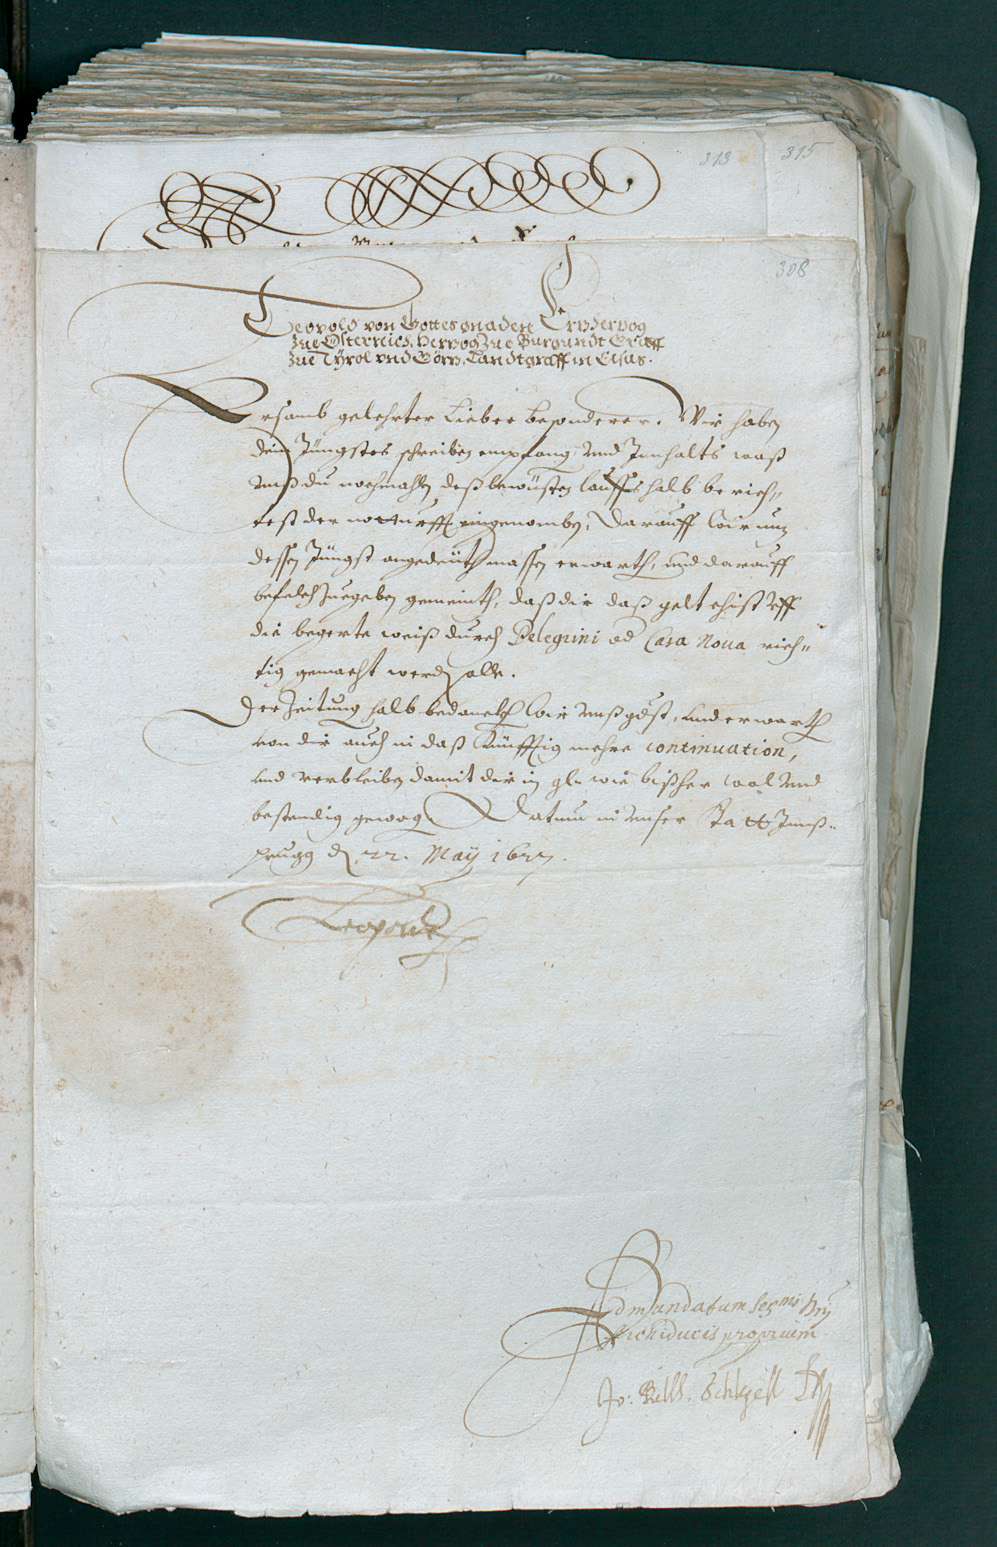 313
315
308
Leopold von Gottes gnaden Ertzhertzog
zue Össterreich, Hertzog zue Burgundt Graff
zue Tyrol vnd Görtz, Landtgraff in Elsas.
Ersamb gelehrter Lieber besonderer. Wir haben
dein Jüngstes schreiben empfang vnd Innhalts waß
vnß du nochmahln deß bewüsten lauffs halb berich-
test der notturfft eingenomben, Darauff wir nun
dessen Jüngst angedeüth massen erwarth, vnd darauff
befelch zuegeben gemeinth, daß dir daß gelt ehist vff
die begerte weiß durch Pelegrini od Casa Noua rich-
tig gemacht werdn solle.
Der Zeitung halb bedanckh wir vnß gdst, und erwarth
von dir auch in daß künfftig mehre continuation,
und verbleiben damit dir in gl. wie bißher wol vnd
bestendig gewogn Datum in vnser Statt Innß-
prugg dn 22. May 1627.
Leopold
Ad mandatum Sermi Dni
Archiducis proprium